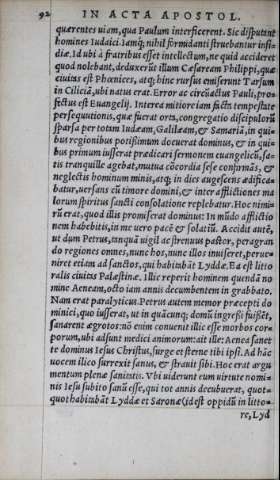 92 IN ACTA APOSTOL.
quærentes uiam, qua Paulum interficerent. Sic disputant
homines Iudaici. Iamq́; nihil formidanti struebantur insi-
diæ. Id ubi à fratribus esset intellectum, ne quid accideret
quod nolebant, deduxerūt illum Cæsaream Philippi, quæ
ciuitas est Phœnices, atq; hinc rursus emiserunt Tarsum
in Ciliciā, ubi natus erat. Error ac circūactus Pauli, pro-
fectus est Euangelij. Interea mitiore iam factā tempestate
persequutionis, quæ fuerat orta, congregatio discipulorū
sparsa per totam Iudæam, Galilæam, & Samariā, in qui-
bus regionibus potissimum docuerat dominus, & in qui-
bus primum iusserat prædicari sermonem euangelicū, sa-
tis tranquille agebat, mutua cōcordia sese confirmās, &
neglectis hominum minis, atq; in dies augescens ædifica-
batur, uersans cū timore domini, & inter afflictiones ma
lorum spiritus sancti consolatione replebatur. Hoc nimi-
rū erat, quod illis promiserat dominus: In mūdo afflictio
nem habebitis, in me uero pacē & solatiū. Accidit autē,
ut dum Petrus, tanquā uigil ac strenuus pastor, peragran
do regiones omnes, nunc hos, nunc illos inuiseret, perue-
niret etiam ad sanctos, qui habitabāt Lyddæ. Ea est litto
ralis ciuitas Palæstinæ. Illic reperit hominem quendā no
mine Aeneam, octo iam annis decumbentem in grabbato.
Nam erat paralyticus. Petrus autem memor præcepti do
minici, quo iusserat, ut in quācunq; domū ingressi fuissēt,
sanarent ægrotos: nō enim conuenit illic esse morbos cor-
porum, ubi adsunt medici animorum: ait ille: Aenea sanet
te dominus Iesus Christus, surge et sterne tibi ipsi. Ad hāc
uocem ilico surrexit sanus, & strauit sibi. Hoc erat argu
mentum plenæ sanitatis. Vbi uiderunt eum uirtute nomi-
nis Iesu subito sanū esse, qui tot annis decubuerat, quot-
quot habitabāt Lyddæ et Saronæ (id est oppidū in litto-
re, Lyd